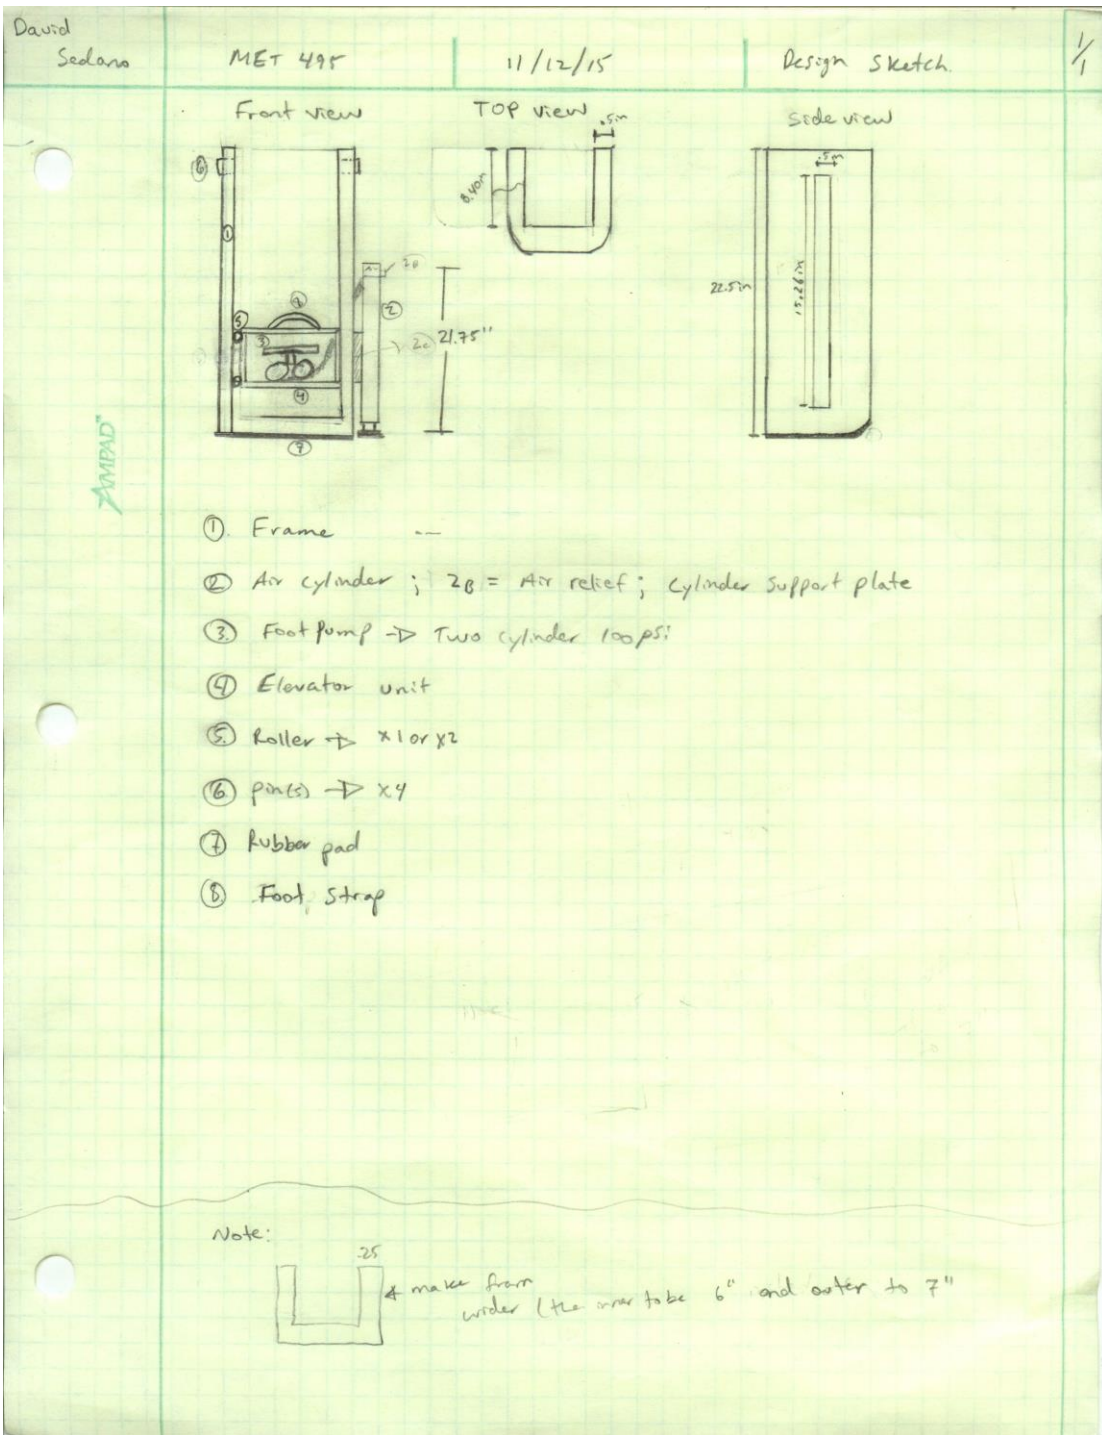 David
Sedano
MET 495
11/12/15
Design Sketch
1/1
Front view
TOP view
side view
.5in
.5in
6
1
8.40in
2B
2
22.5in
15.26in
8
5
3
2c
21.75"
4
7
AMPAD
① Frame --
② Air cylinder ; 2B = Air relief ; cylinder support plate
③ Foot Pump → Two cylinder 100 psi
④ Elevator unit
⑤ Roller → x1 or x2
⑥ pin(s) → x4
⑦ Rubber pad
⑧ Foot Strap
Note:
.25
make fram
wider (the inner to be 6" and outer to 7"